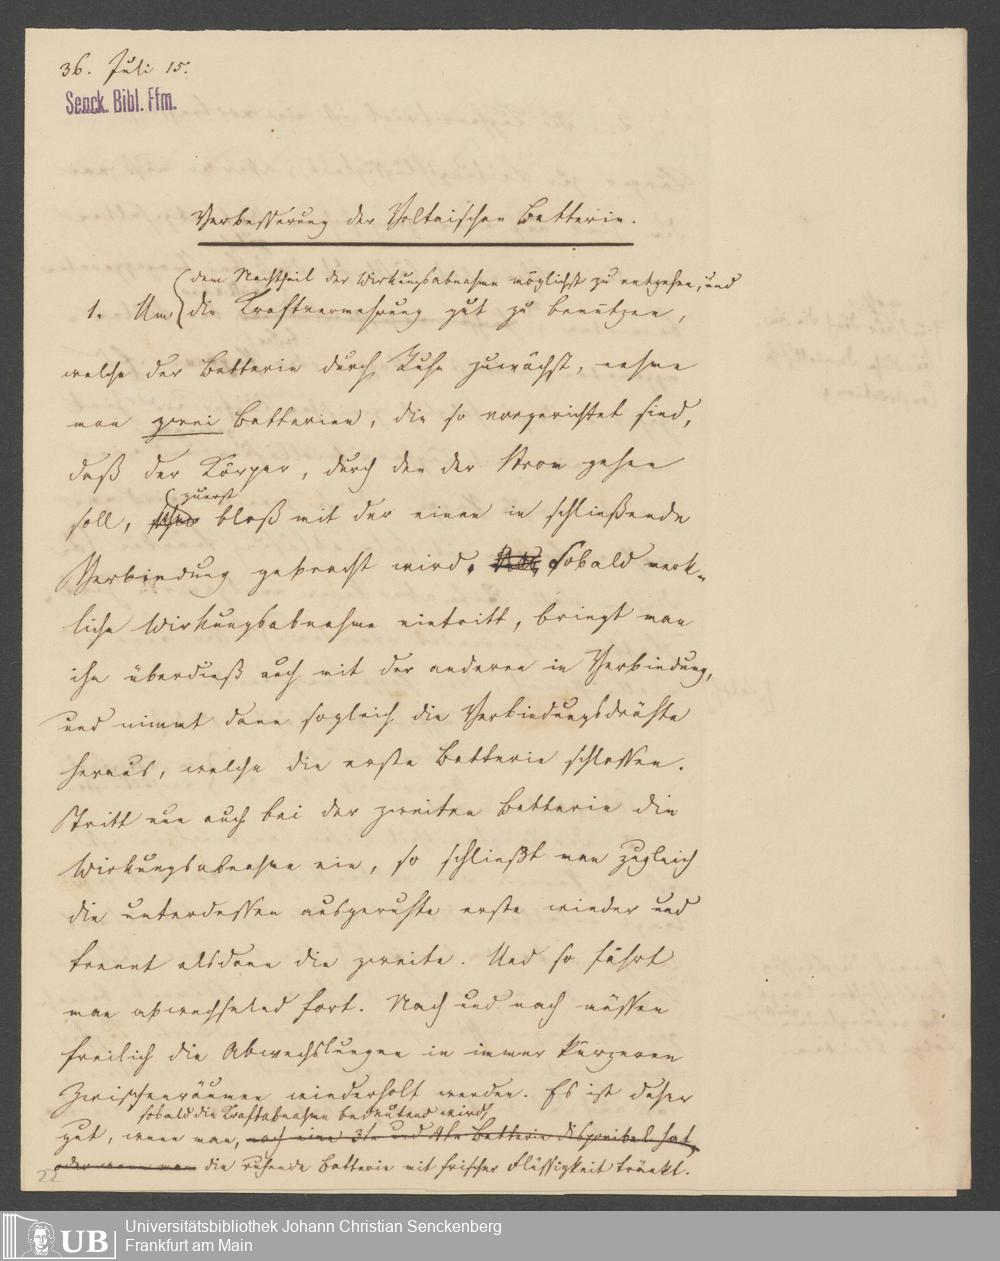 36. Juli 15.
Senck. Bibl. Ffm.
Verbesserung der Voltaischen Batterie.
dem Nachtheil der Wirkungsabnahme möglichst zu entgehen, und
1. Um die Kraftvermehrung gut zu benützen,
welche der Batterie durch Ruhe zuwächst, nehme
man zwei Batterien, die so vorgerichtet sind,
daß der Körper, durch den der Strom gehen
zuerst
soll, bloß mit der einen in schließende
Verbindung gebracht wird. Sobald merk-
liche Wirkungsabnahme eintritt, bringt man
ihn überdieß auch mit der anderen in Verbindung,
und nimmt dann sogleich die Verbindungsdrähte
heraus, welche die erste Batterie schlossen.
Tritt nun auch bei der zweiten Batterie die
Wirkungsabnahme ein, so schließt man zugleich
die unterdessen ausgeruhte erste wieder und
trennt alsdann die zweite. Und so fährt
man abwechselnd fort. Nach und nach müssen
freilich die Abwechslungen in immer kürzeren
Zwischenräumen wiederholt werden. Es ist daher
sobald die Kraftabnahme bedeutend wird,
gut, wenn man, noch eine 3te und 4te Batterie disponibel hat,
oder wenn man die ruhende Batterie mit frischer Flüssigkeit tränkt.
22
UB
Universitätsbibliothek Johann Christian Senckenberg
Frankfurt am Main